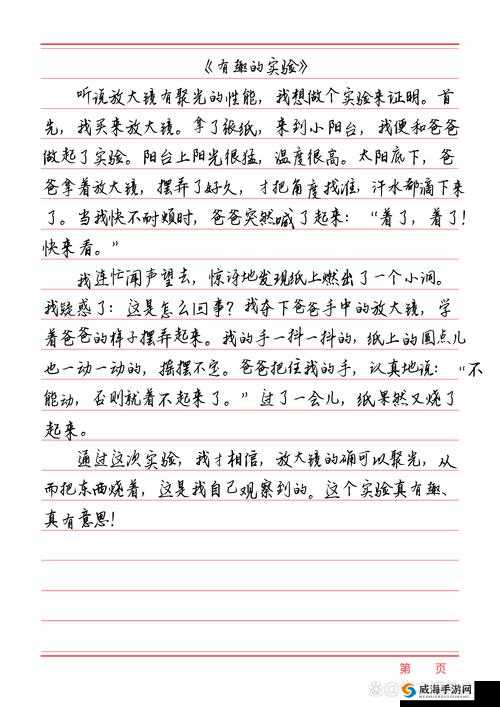 《有趣的实验》
听说放大镜有聚光的性能，我想做个实验来证明。首
先，我买来放大镜。拿了张纸，来到小阳台，我便和爸爸
做起了实验。阳台上阳光很猛，温度很高。太阳底下，爸
爸拿着放大镜，摆弄了好久，才把角度找准，汗水都滴下来
了。当我快不耐烦时，爸爸突然喊了起来：“着了，着了！
快来看。”
我连忙闻声望去，惊讶地发现纸上燃出了一个小洞。
我疑惑了：这是怎么回事？我夺下爸爸手中的放大镜，学
着爸爸的样子摆弄起来。我的手一抖一抖的，纸上的圆点儿
也一动一动的，摇摆不定。爸爸把住我的手，认真地说：“不
能动，否则就着不起来了。”过了一会儿，纸果然又烧了
起来。
通过这次实验，我才相信，放大镜的确可以聚光，从
而把东西烧着，这是我自己观察到的。这个实验真有趣、
真有意思！
第 页
威海手游网